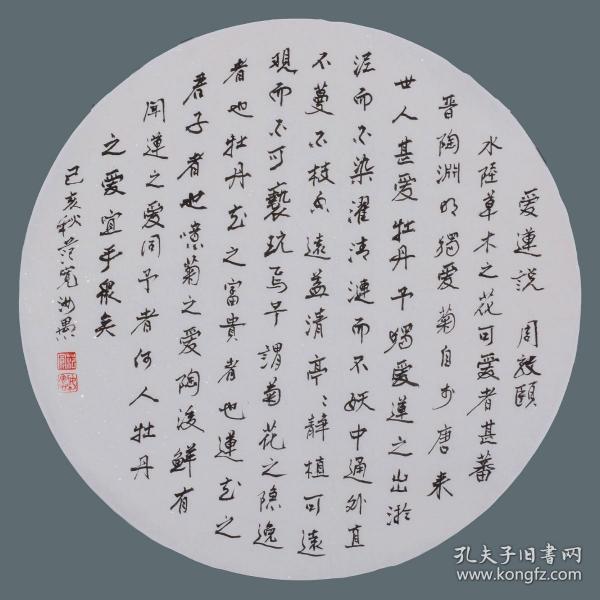 愛蓮説 周敦頤
水陸草木之花可愛者甚蕃
晋陶淵明獨愛菊自李唐来
世人甚愛牡丹予獨愛蓮之出淤
泥而不染濯清漣而不妖中通外直
不蔓不枝香遠益清亭〻静植可遠
觀而不可褻玩焉予謂菊花之隐逸
者也牡丹花之富貴者也蓮花之
君子者也噫菊之愛陶後鮮有
聞蓮之愛同予者何人牡丹
之愛宜乎衆矣
己亥秋范寬
孔夫子旧書网
www.kongfz.com